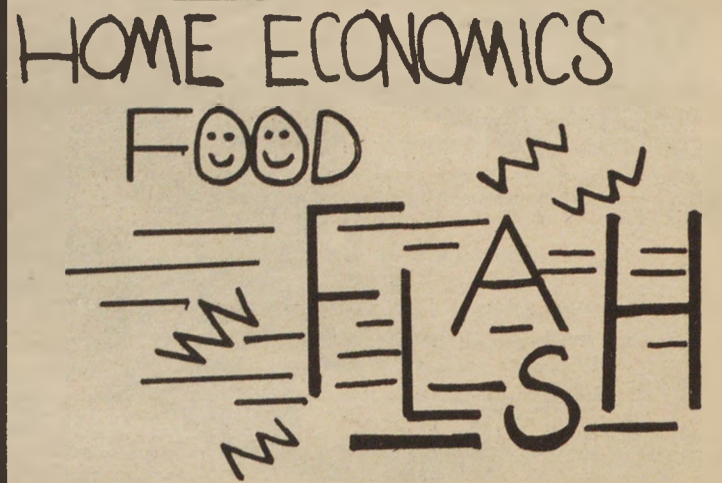 HOME ECONOMICS
FOOD
FLASH